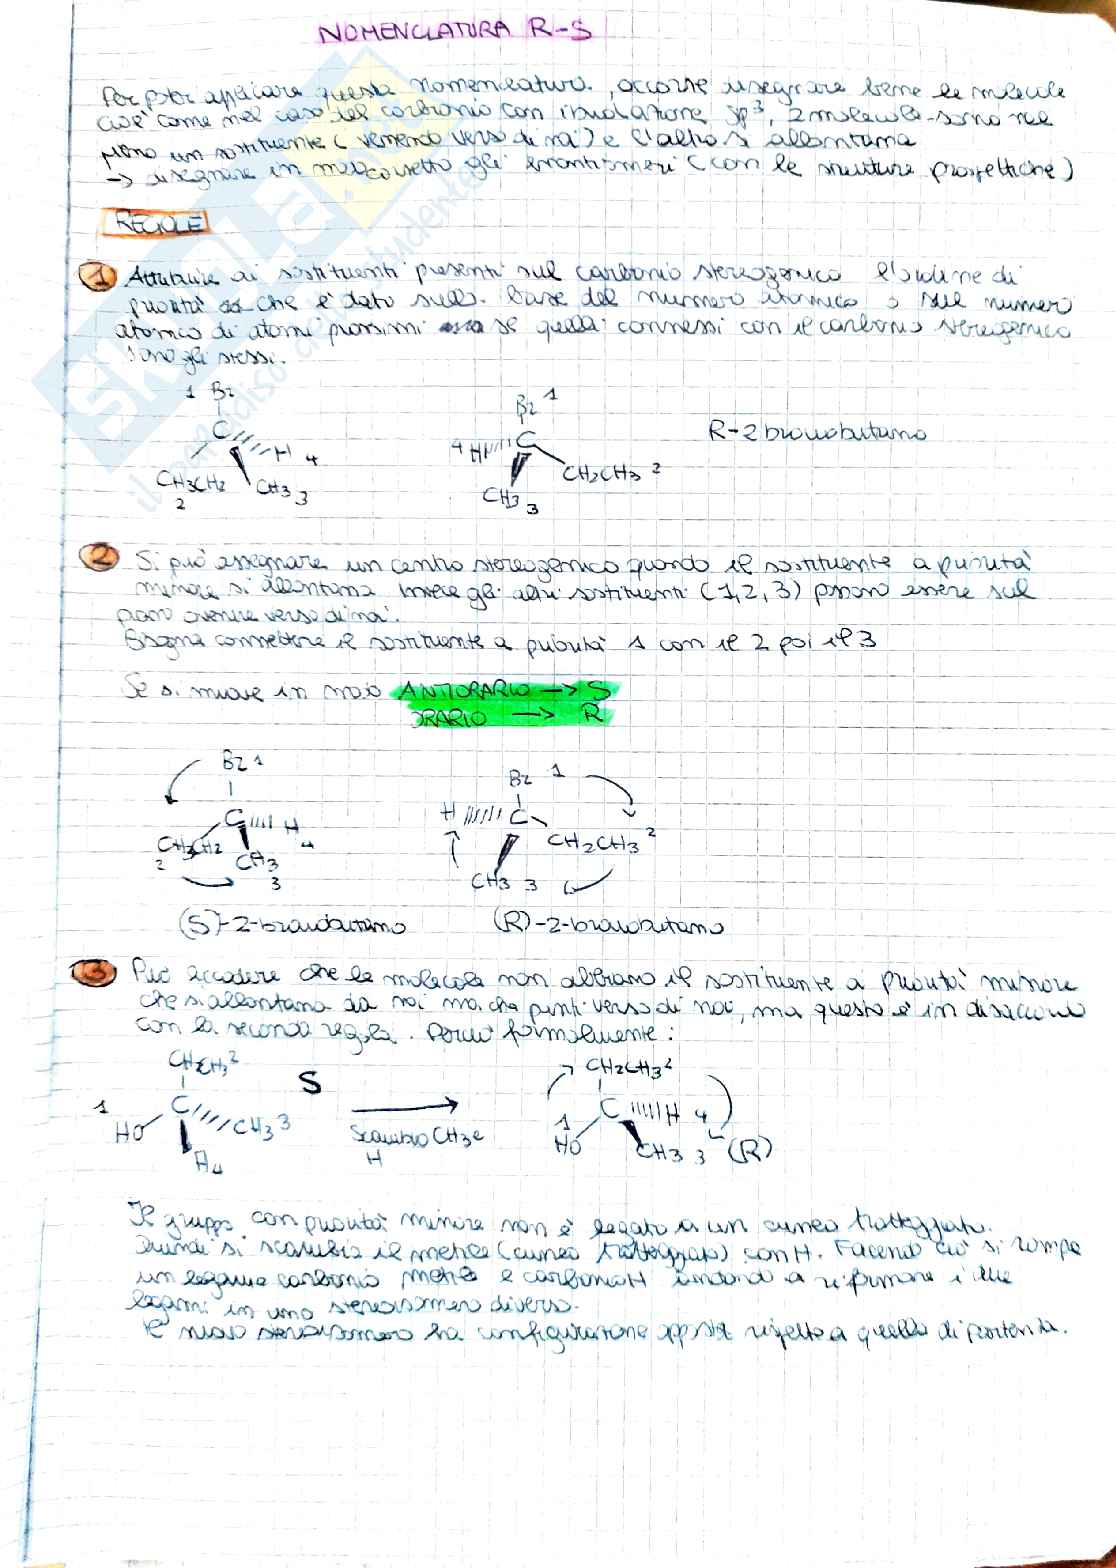 NOMENCLATURA R-S
Per poter applicare questa nomenclatura, occorre disegnare bene le molecole
cioè come nel caso del carbonio con ibridazione sp³, 2 molecole sono nel
piano un sostituente (venendo verso di noi) e l'altro si allontana
→ disegnare in modo corretto gli enantiomeri (con le strutture prospettiche)
REGOLE
1 Attribuire ai sostituenti presenti sul carbonio stereogenico l'ordine di
priorità che è dato sulla base del numero atomico o sul numero
atomico di atomi prossimi se quelli connessi con il carbonio stereogenico
sono gli stessi.
1 Br
C
H 4
CH3CH2
2
CH3 3
Br 1
4 H C
CH2CH3 2
CH3 3
R-2 bromobutano
2 Si può assegnare un centro stereogenico quando il sostituente a priorità
minore si allontana invece gli altri sostituenti (1,2,3) possono essere sul
piano o venire verso di noi.
Bisogna connettere il sostituente a priorità 1 con il 2 poi il 3
Se si muove in modo ANTIORARIO → S
ORARIO → R
Br 1
C H
4
CH3CH2
2
CH3
3
Br 1
H C
CH2CH3 2
CH3 3
(S)-2-bromobutano (R)-2-bromobutano
3 Può accadere che le molecole non abbiano il sostituente a priorità minore
che si allontana da noi ma che punti verso di noi, ma questo è in disaccordo
con la seconda regola. Perciò formalmente:
CH2CH3 2
S
1
HO
C
CH3 3
H4
Scambio CH3 e
H
CH2CH3 2
1
HO
C H 4
CH3 3 (R)
Il gruppo con priorità minore non è legato a un cuneo tratteggiato.
Quindi si scambia il metile (cuneo tratteggiato) con H. Facendo ciò si rompe
un legame carbonio metile e carbonio H andando a riformare i due
legami in uno stereoisomero diverso.
Il nuovo stereoisomero ha configurazione opposta rispetto a quello di partenza.
skuola.net
il paradiso dello studente